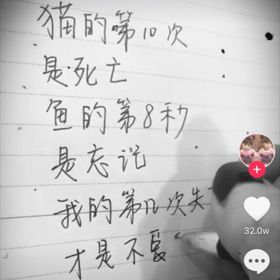 猫的第10次
是死亡
鱼的第8秒
是忘记
我的第几次失
才是不爱
32.0w